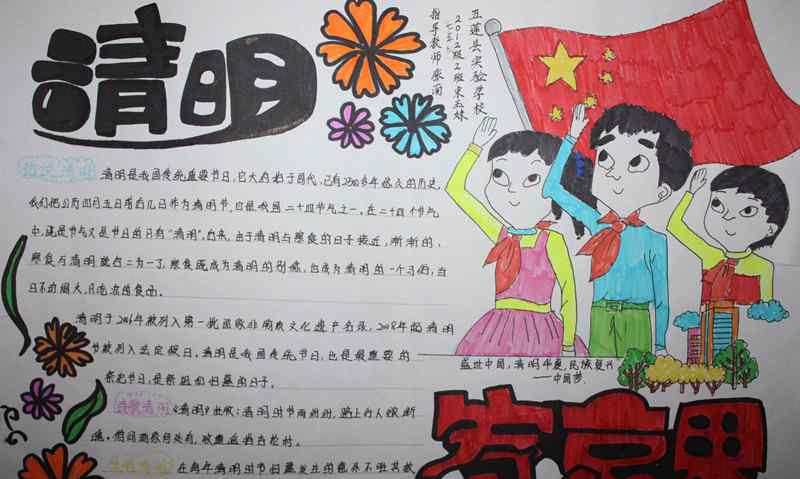 清明
五莲县实验学校
2012级2班
指导教师
清明是我国传统重要节日,它大约始于周代,已有2500多年悠久的历史,
我们把公历四月五日前后几日作为清明节,它是我国二十四节气之一,在二十四个节气
中,既是节气又是节日的只有“清明”。后来,由于清明与寒食的日子接近,渐渐的,
寒食与清明就合二为一了,寒食既成为清明的别称,也成为清明的一个习俗,当
日不动烟火,只吃凉的食品。
清明于2006年被列入第一批国家非物质文化遗产名录,2008年起清明
节被列入法定假日。清明是我国传统节日,也是最重要的
祭祀节日,是祭祖和扫墓的日子。
诗歌清明 《清明》杜牧:清明时节雨纷纷,路上行人欲断
魂。借问酒家何处有,牧童遥指杏花村。
在每年清明时节扫墓发生的
盛世中国,清明华夏,民族复兴
——中国梦.